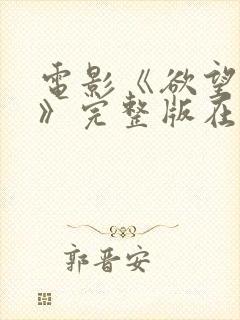 電影《欲望
》完整版在
郭晋安